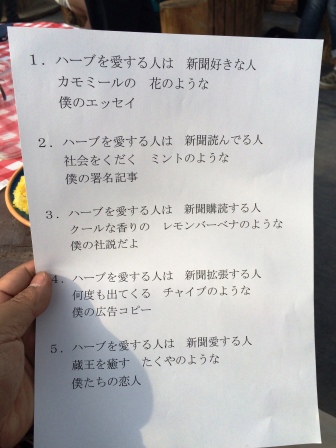 1．ハーブを愛する人は　新聞好きな人
カモミールの　花のような
僕のエッセイ
2．ハーブを愛する人は　新聞読んでる人
社会をくだく　ミントのような
僕の署名記事
3．ハーブを愛する人は　新聞購読する人
クールな香りの　レモンバーベナのような
僕の社説だよ
4．ハーブを愛する人は　新聞拡張する人
何度も出てくる　チャイブのような
僕の広告コピー
5．ハーブを愛する人は　新聞愛する人
蔵王を癒す　たくやのような
僕たちの恋人